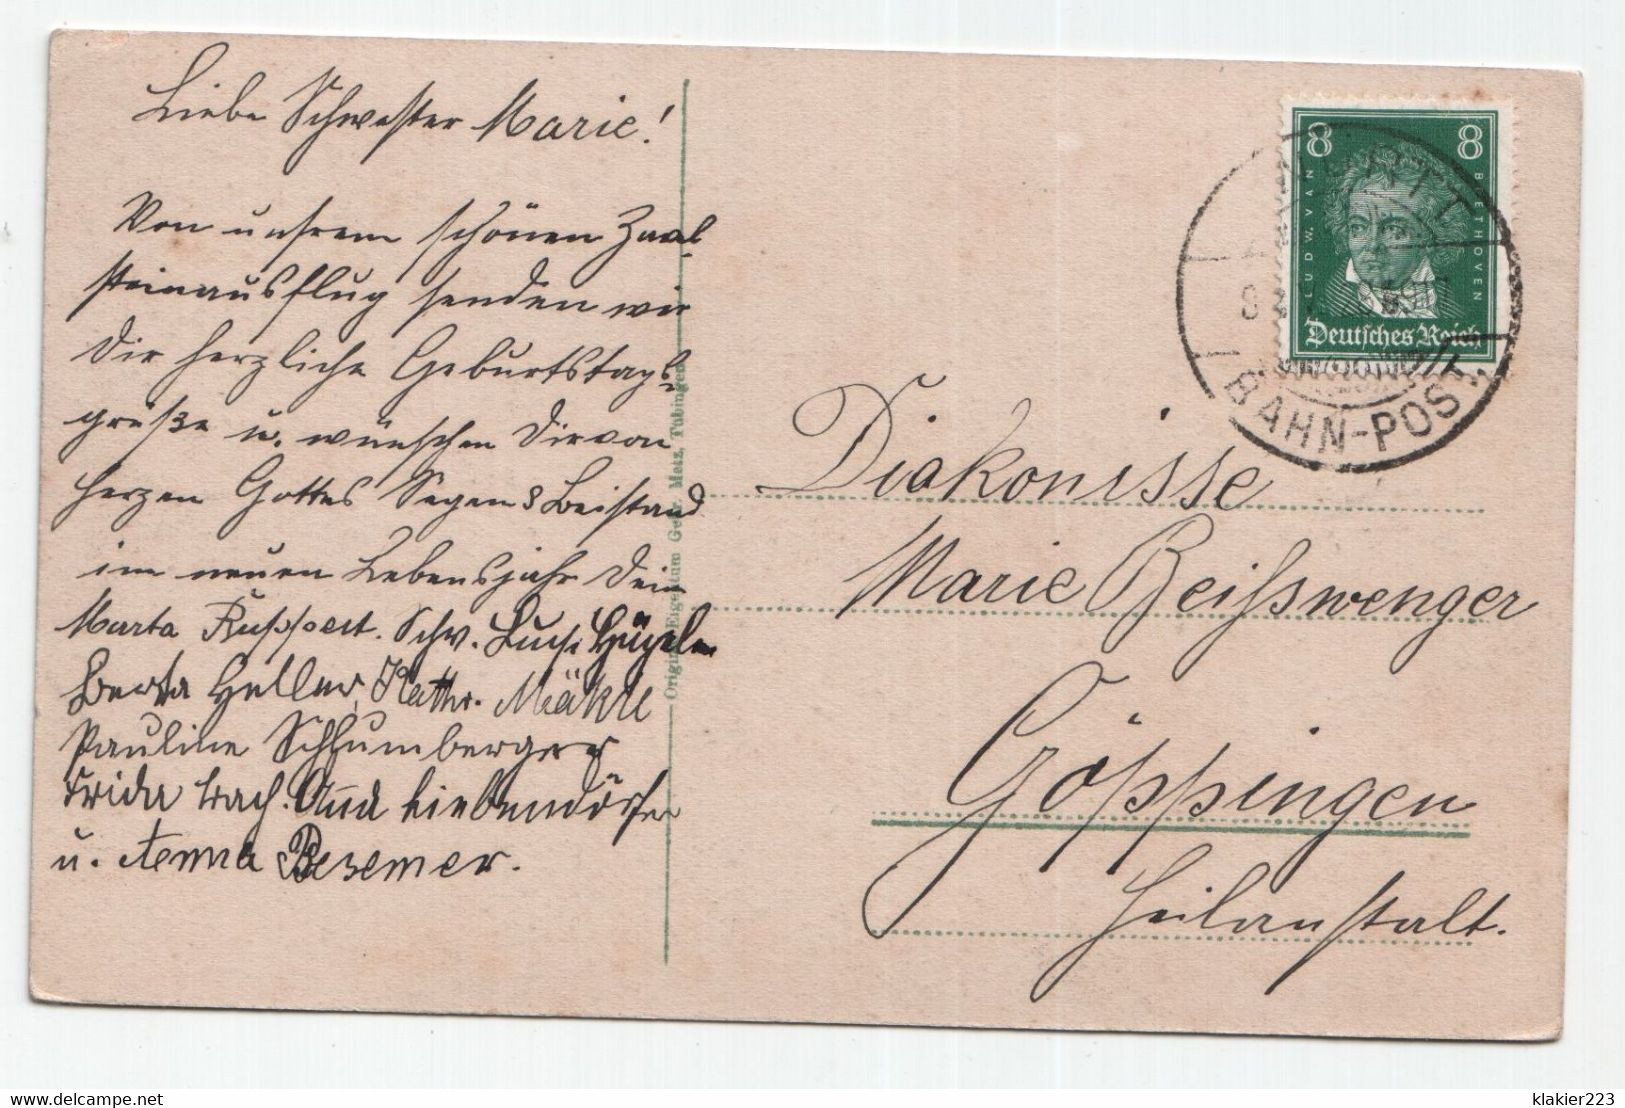 Liebe Schwester Marie!
Von unserem schönen Zaval-
steinausflug senden wir
Dir herzliche Geburtstags-
grüße u. wünschen Dir von
Herzen Gottes Segen & Beistand
im neuen Lebensjahr Dein
Marta Ruppert. Schw. Luise Hügel
Berta Heller, Kathr. Mäkle
Pauline Schlumberger
Frida Anna
u. Anna Besemer.
Original-Eigentum Gebr. Metz, Tübingen.
8 8
LUDW. VAN BEETHOVEN
Deutsches Reich
BAHN-POST
Diakonisse
Marie Beißwenger
Göppingen
Heilanstalt.
klakier223